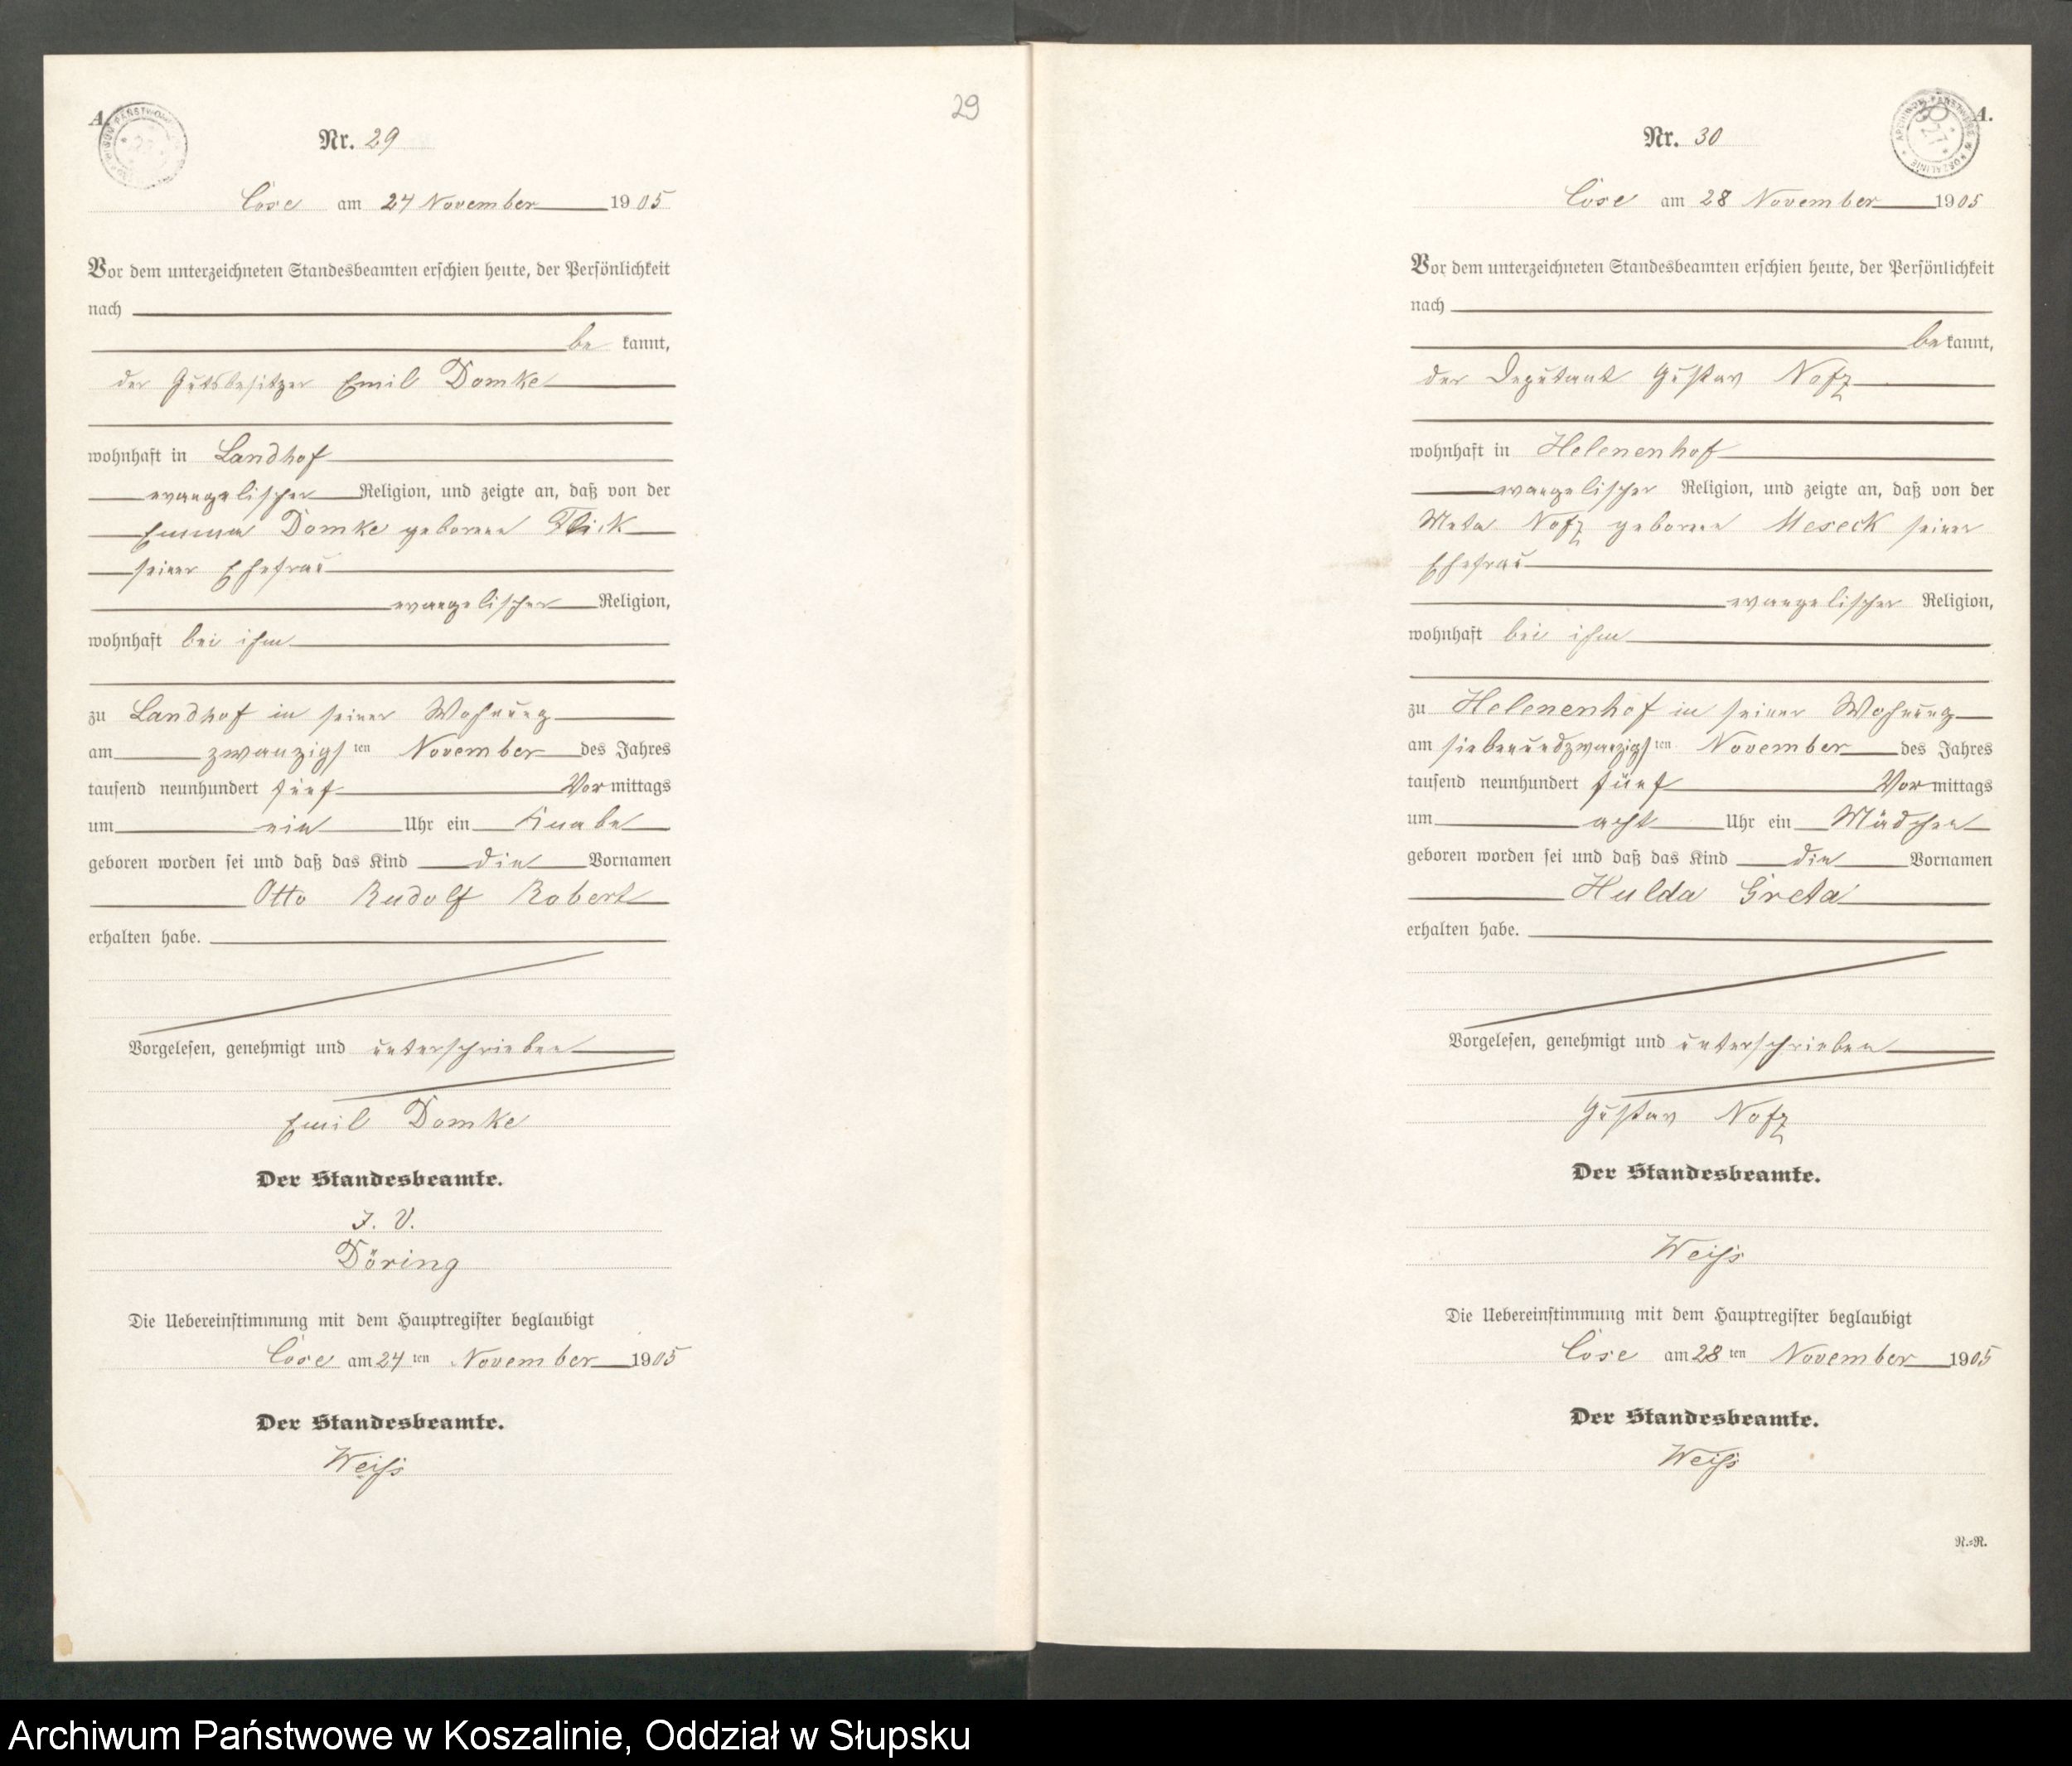 A.
29
Nr. 29
Cose am 24 November 1905
Vor dem unterzeichneten Standesbeamten erschien heute, der Persönlichkeit
nach
be kannt,
der Gutsbesitzer Emil Domke
wohnhaft in Landhof
evangelischer Religion, und zeigte an, daß von der
Emma Domke geborene Flick
seiner Ehefrau
evangelischer Religion,
wohnhaft bei ihm
zu Landhof in seiner Wohnung
am zwanzigsten November des Jahres
tausend neunhundert fünf Vormittags
um ein Uhr ein Knabe
geboren worden sei und daß das Kind die Vornamen
Otto Rudolf Robert
erhalten habe.
Vorgelesen, genehmigt und unterschrieben
Emil Domke
Der Standesbeamte.
J. V.
Döring
Die Uebereinstimmung mit dem Hauptregister beglaubigt
Cose am 24ten November 1905
Der Standesbeamte.
Weiß
A.
30
ARCHIWUM PAŃSTWOWE W KOSZALINIE
27
Nr. 30
Cose am 28 November 1905
Vor dem unterzeichneten Standesbeamten erschien heute, der Persönlichkeit
nach
bekannt,
der Deputant Gustav
wohnhaft in Helenenhof
evangelischer Religion, und zeigte an, daß von der
Meta geborene Meseck seiner
Ehefrau
evangelischer Religion,
wohnhaft bei ihm
zu Helenenhof in seiner Wohnung
am siebenundzwanzigsten November des Jahres
tausend neunhundert fünf Vormittags
um acht Uhr ein Mädchen
geboren worden sei und daß das Kind die Vornamen
Hulda Greta
erhalten habe.
Vorgelesen, genehmigt und unterschrieben
Gustav
Der Standesbeamte.
Weiß
Die Uebereinstimmung mit dem Hauptregister beglaubigt
Cose am 28ten November 1905
Der Standesbeamte.
Weiß
R.=R.
Archiwum Państwowe w Koszalinie, Oddział w Słupsku